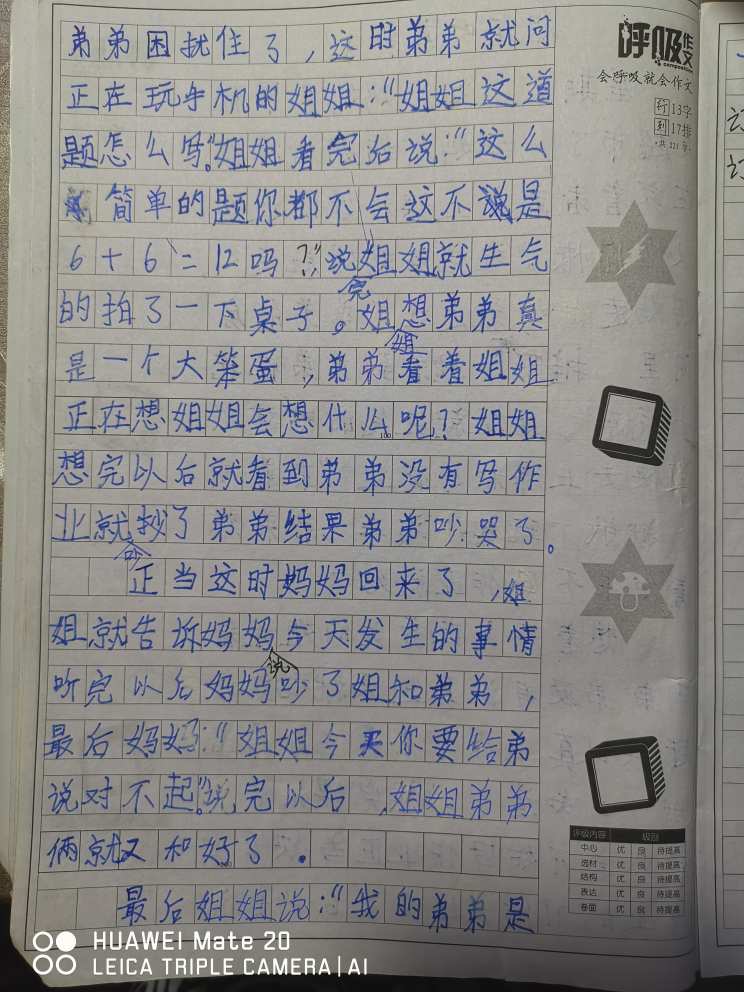 弟弟困扰住了，这时弟弟就问
正在玩手机的姐姐："姐姐这道
题怎么写。"姐姐看完后说："这么
简单的题你都不会这不就是
6+6=12吗？"说完姐姐就生气
的拍了一下桌子。姐姐想弟弟真
是一个大笨蛋，弟弟看着姐姐
正在想姐姐会想什么呢？姐姐
想完以后就看到弟弟没有写作
业就吵了弟弟结果弟弟吵哭了。
正当这时妈妈回来了，姐
姐就告诉妈妈今天发生的事情
听完以后妈妈说吵了姐和弟弟，
最后妈妈："姐姐今天你要给弟
说对不起。"说完以后，姐姐弟弟
俩就又和好了.
最后姐姐说："我的弟弟是
呼吸作文
composition
会呼吸就会作文
行 13字
列 17排
·共 221 字·
评级内容 级别
中心 优 良 待提高
选材 优 良 待提高
结构 优 良 待提高
表达 优 良 待提高
卷面 优 良 待提高
100
HUAWEI Mate 20
LEICA TRIPLE CAMERA | AI